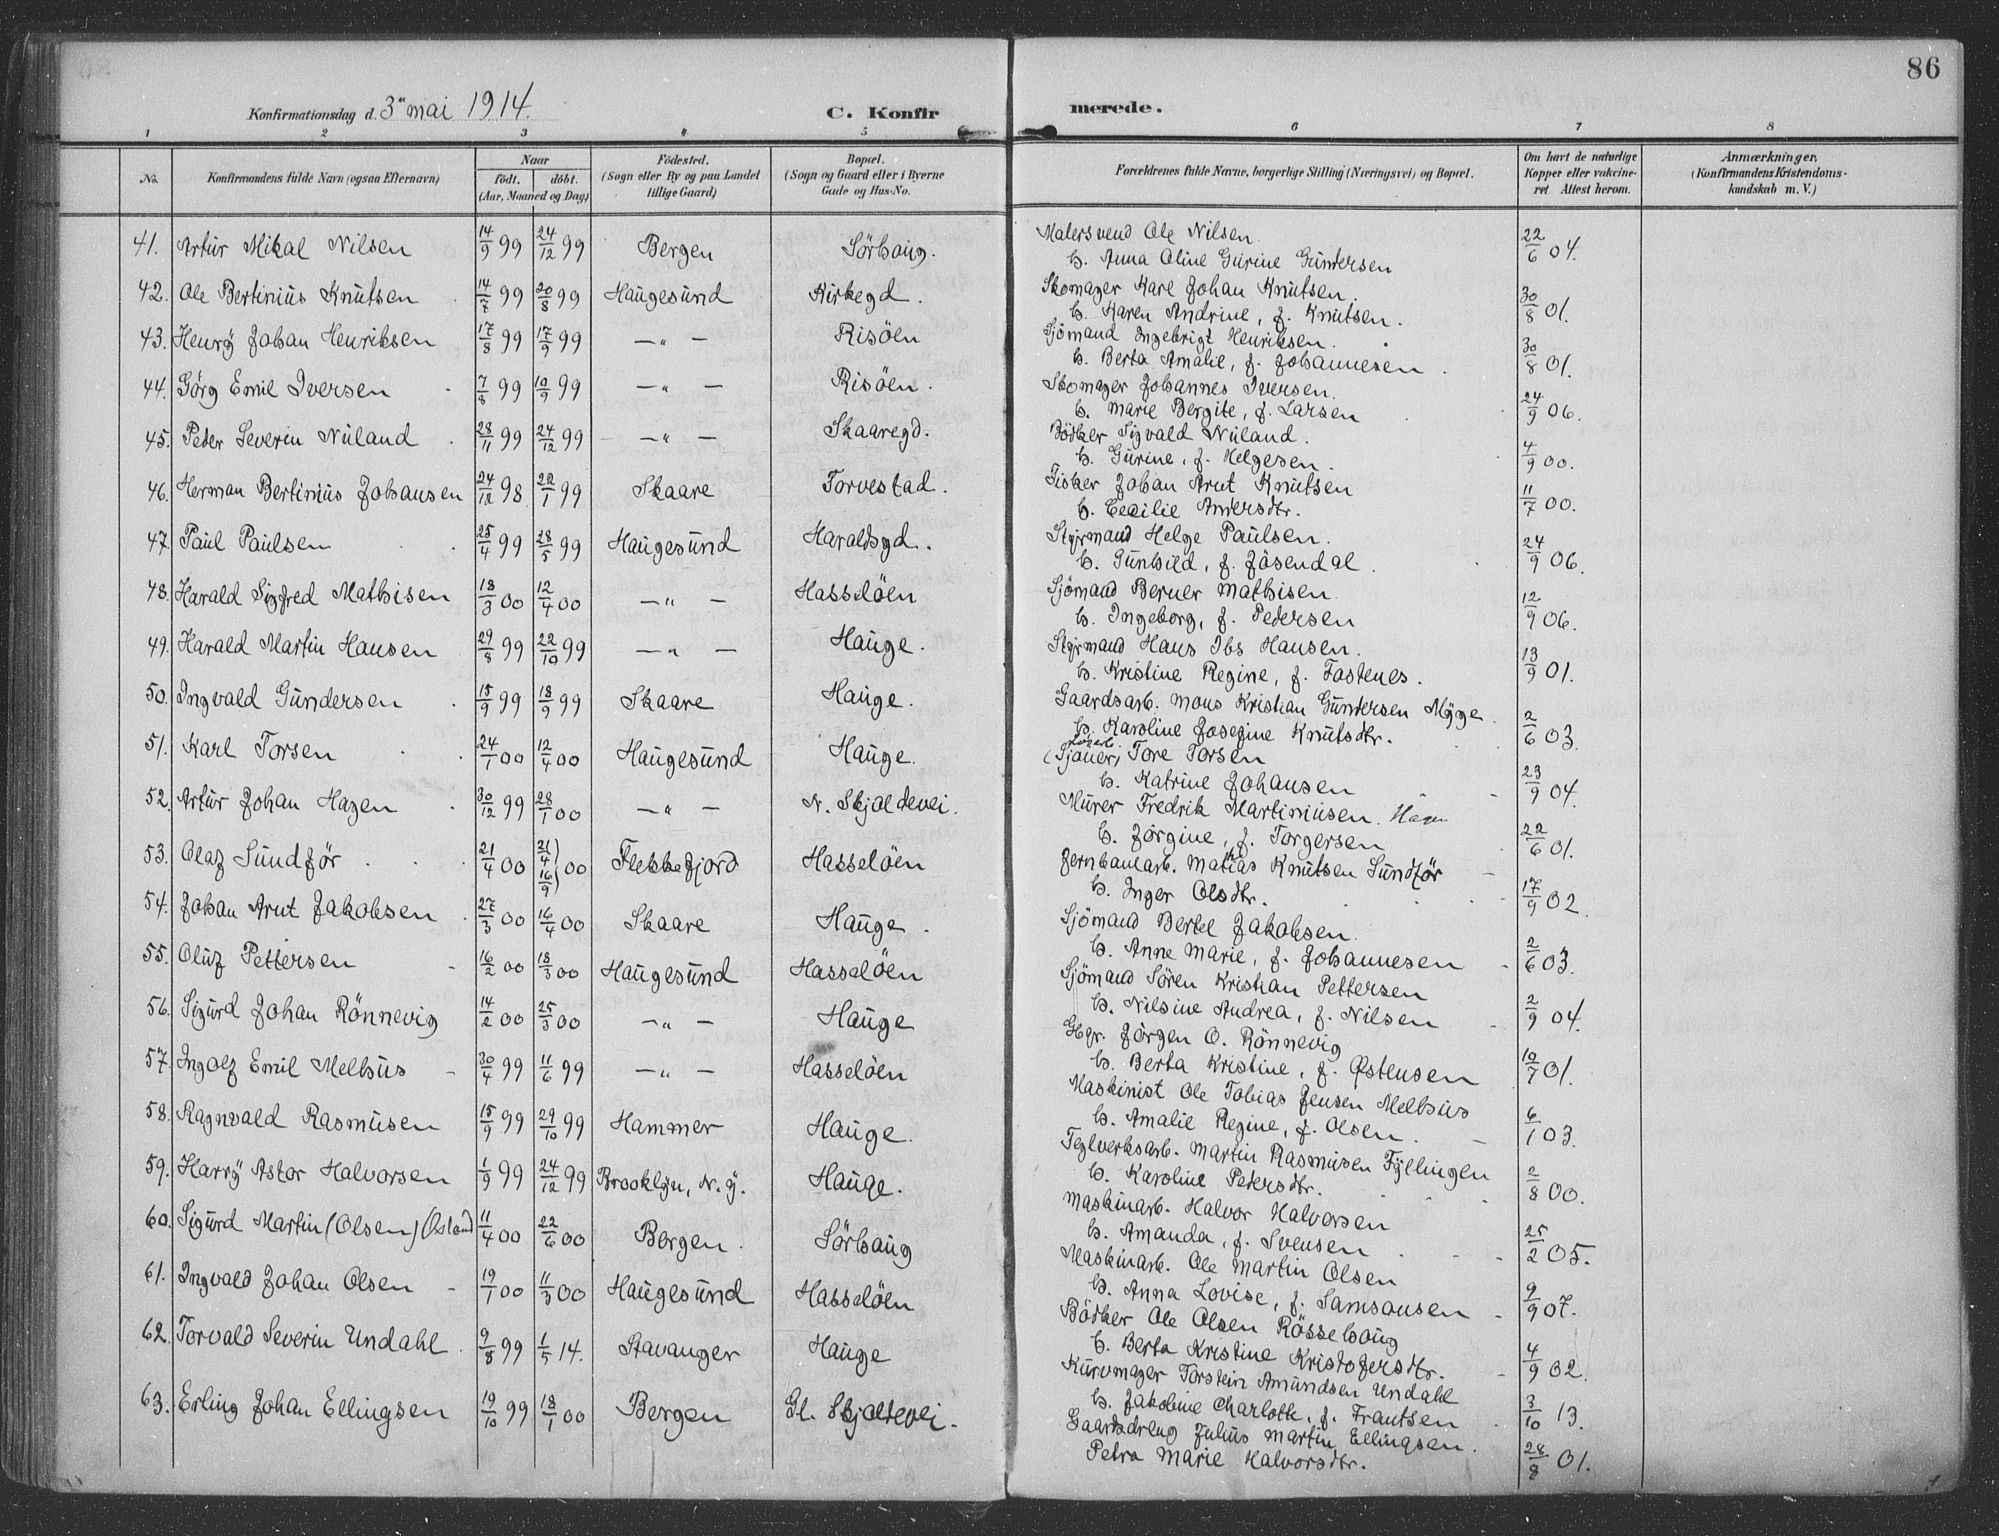 86
Konfirmationsdag d. 3" mai 1914.
C. Konfirmerede.
1 2 3 4 5 6 7 8
No.
Konfirmandens fulde Navn (ogsaa Efternavn)
Naar
født. døbt.
(Aar, Maaned og Dag)
Fødested.
(Sogn eller By og paa Landet
tillige Gaard)
Bopæl.
(Sogn og Gaard eller i Byerne
Gade og Hus-No.
Forældrenes fulde Navne, borgerlige Stilling (Næringsvei) og Bopæl.
Om havt de naturlige
Kopper eller vakcine-
ret. Attest herom.
Anmærkninger.
(Konfirmandens Kristendoms-
kundskab m. V.)
41. Artur Mikal Nilsen 14/9 99 24/12 99 Bergen Sörhaug. Malersvend Ole Nilsen
h. Anna Oline Gurine Gundersen 22/6 04.
42. Ole Bertinius Knutsen 14/7 99 20/8 99 Haugesund Kirkegd. Skomager Karl Johan Knutsen.
h. Karen Andrine, f. Knutsen. 30/8 01.
43. Henry Johan Henriksen 17/8 99 17/9 99 —"— Risöen Sjömand Ingebrigt Henriksen.
h. Berta Amalie, f. Johannesen 30/8 01.
44. Görg Emil Iversen 7/8 99 10/9 99 —"— Risöen. Skomager Johannes Iversen.
h. Marie Bergite, f. Larsen 24/9 06.
45. Peder Severin Nuland 28/11 99 24/12 99 —"— Skaaregd. Bödker Sigvald Nuland.
h. Gurine, f. Helgesen. 4/9 00.
46. Herman Bertinius Johansen 24/12 98 22/1 99 Skaare Torvestad. Fisker Johan Arnt Knutsen
h. Cecilie Andersdtr. 11/7 00.
47. Paul Paulsen 25/4 99 28/5 99 Haugesund Haraldsgd. Styrmand Helge Paulsen.
h. Gunhild, f. Jösendal. 24/9 06.
48. Harald Sigfred Mathisen 18/3 00 12/4 00 —"— Hasselöen Sjömand Berner Mathisen.
h. Ingeborg, f. Pedersen 12/9 06.
49. Harald Martin Hansen 29/8 99 22/10 99 —"— Hauge. Styrmand Hans Ibs Hansen.
h. Kristine Regine, f. Fastenes. 13/9 01.
50. Ingvald Gundersen 15/9 99 18/9 99 Skaare Hauge. Gaardsarb. Mons Kristian Gundersen Myge
h. Karoline Josefine Knutsdtr. 2/6 03.
51. Karl Torsen 24/1 00 12/4 00 Haugesund Hauge. (Sjauer) Tore Torsen
h. Katrine Johansen 23/9 04.
52. Artur Johan Hagen 30/12 99 28/1 00 —"— N. Skjoldevei. Murer Fredrik Martiniusen. Hagen
h. Jörgine, f. Torgersen 22/6 01.
53. Olaf Sundför 21/4 00 (21/4 16/9) 00 Flekkefjord Hasselöen Jernbanearb. Matias Knutsen Sundför
h. Inger Olsdtr. 17/9 02.
54. Johan Arnt Jakobsen 27/3 00 16/4 00 Skaare Hauge. Sjömand Bertel Jakobsen.
h. Anne Marie, f. Johannesen 2/6 03.
55. Oluf Pettersen 16/2 00 18/3 00 Haugesund Hasselöen Sjömand Sören Kristian Pettersen
h. Nilsine Andrea, f. Nilsen 2/9 04.
56. Sigurd Johan Rönnevig 14/2 00 25/3 00 —"— Hauge Hgr. Jörgen O. Rönnevig
h. Berta Kristine, f. Østensen 19/7 01.
57. Ingolf Emil Melhus 30/4 99 11/6 99 —"— Hasselöen Maskinist Ole Tobias Jensen Melhus
h. Amalie Regine, f. Olsen. 6/1 03.
58. Ragnvald Rasmusen 15/9 99 29/10 99 Hammer Hauge. Teglverksarb. Martin Rasmusen Fyllingen
h. Karoline Petersdtr. 2/8 00.
59. Harry Astor Halvorsen 1/9 99 24/12 99 Brooklyn, N.Y. Hauge. Maskinarb. Halvor Halvorsen
h. Amanda, f. Svensen 25/2 05.
60. Sigurd Martin (Olsen) Østland 11/4 00 22/6 00 Bergen. Sörhaug Maskinarb. Ole Martin Olsen
h. Anna Lovise, f. Samsonsen 9/9 07.
61. Ingvald Johan Olsen 19/1 00 11/3 00 Haugesund Hasselöen Bödker Ole Olsen Rösselhaug
h. Berta Kristine Kristofersdtr. 4/9 02.
62. Torvald Severin Undahl 9/8 99 1/5 14. Stavanger Hauge Kurvmager Torstein Amundsen Undahl
h. Jakobine Charlotte, f. Frantsen 3/10 13.
63. Erling Johan Ellingsen 19/10 99 18/1 00 Bergen Gl. Skjoldevei. Gaardsdreng Julius Martin Ellingsen.
Petra Marie Halvorsdtr. 28/8 01.